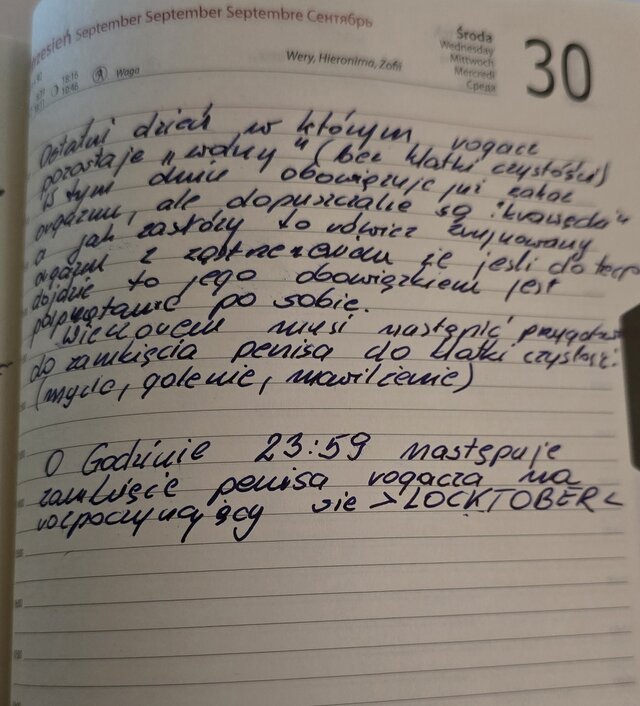 wrzesień September September Septembre Сентябрь
18:16
18:46
Waga
Wery, Hieronima, Zofii
Środa
Wednesday
Mittwoch
Mercredi
Среда
30
Ostatni dzień w którym rogacz
pozostaje "wolny" (bez klatki czystości)
W tym dniu obowiązuje już zakaz
orgazmu, ale dopuszczalne są "krawędzie"
a jak zasłóży to również zrujnowany
orgazm z zastrzeżeniem że jeśli do tego
dojdzie to jego obowiązkiem jest
posprzątanie po sobie.
Wieczorem musi nastąpić przygotow
do zamknięcia penisa do klatki czystości.
(mycie, golenie, nawilżenie)
O Godzinie 23:59 następuje
zamknięcie penisa rogacza na
rozpoczynający się >LOCKTOBER<